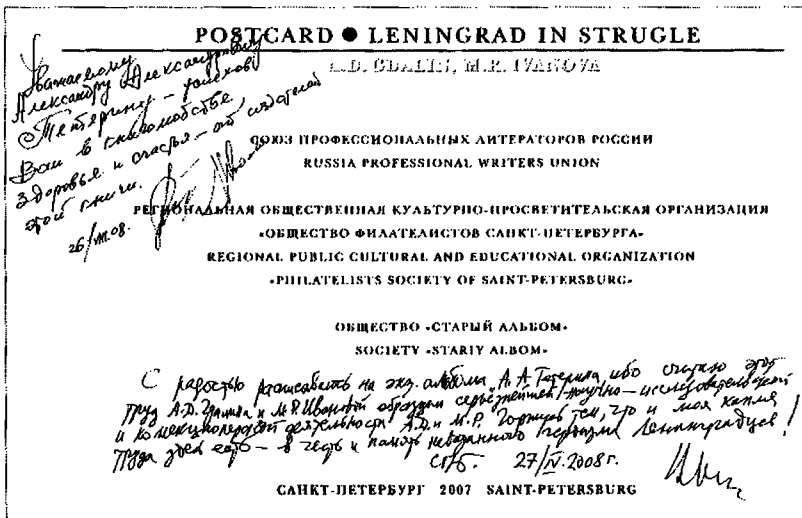 POSTCARD ● LENINGRAD IN STRUGLE
A.D. GDALIN, M.R. IVANOVA
Уважаемому
Александру Александровичу
Тетерину – успехов
Вам в
здоровья и счастья – от создателей
этой книги.
26/ 08.
СОЮЗ ПРОФЕССИОНАЛЬНЫХ ЛИТЕРАТОРОВ РОССИИ
RUSSIA PROFESSIONAL WRITERS UNION
РЕГИОНАЛЬНАЯ ОБЩЕСТВЕННАЯ КУЛЬТУРНО-ПРОСВЕТИТЕЛЬСКАЯ ОРГАНИЗАЦИЯ
«ОБЩЕСТВО ФИЛАТЕЛИСТОВ САНКТ-ПЕТЕРБУРГА»
REGIONAL PUBLIC CULTURAL AND EDUCATIONAL ORGANIZATION
«PHILATELISTS SOCIETY OF SAINT-PETERSBURG»
ОБЩЕСТВО «СТАРЫЙ АЛЬБОМ»
SOCIETY «STARIY ALBOM»
С радостью на экз. альбома А.А. Тетерина ибо считаю этот
труд А.Д. Гдалина и М.Р. Ивановой образцом серьёзнейшей научно-исследовательской
и коллекционерской деятельности А.Д. и М.Р. Горжусь тем, что и моя капля
труда здесь есть – в честь и память героизма ленинградцев!
СПб. 27/IV.2008г.
САНКТ-ПЕТЕРБУРГ 2007 SAINT-PETERSBURG